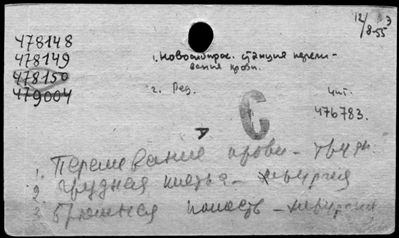 12/8-55 Э
478148
478149
478150
479004
1. Новосибирс. станция перели-
вания крови.
2. Ред. Чит.
476783.
С
1. Переливание крови - труды
2. Грудная клетка - хирургия
3. Брюшная полость - хирургия